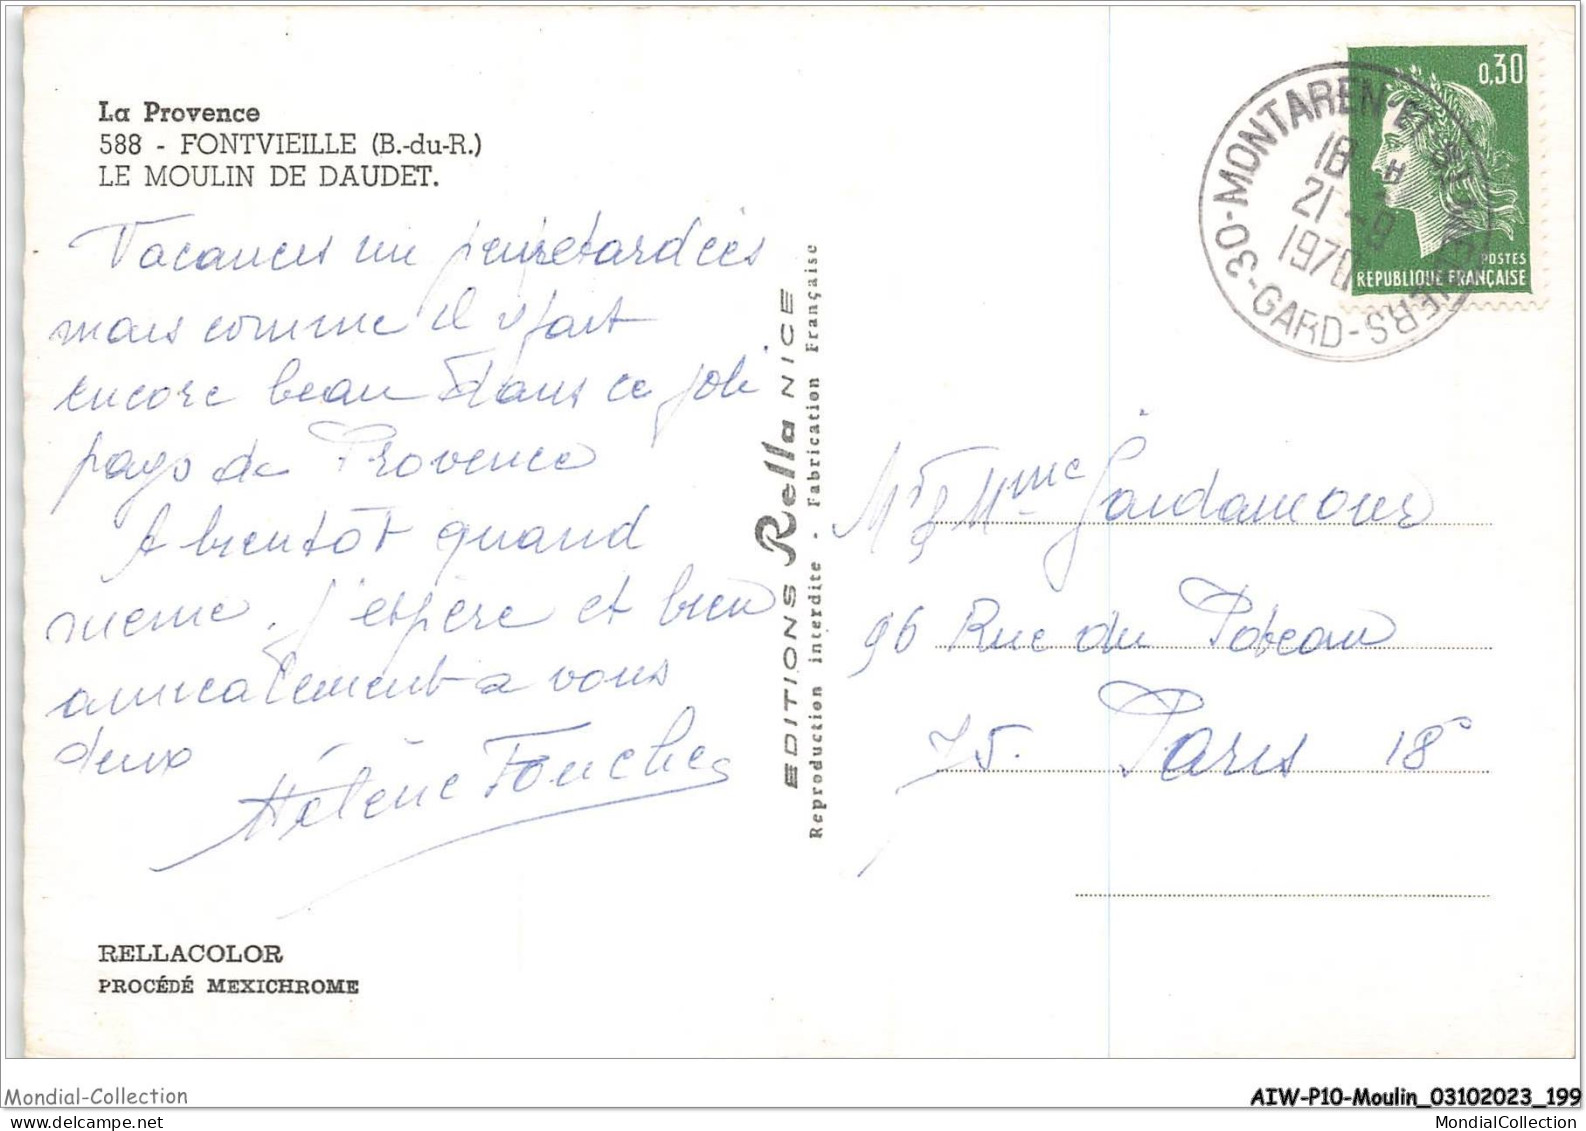 La Provence
588 - FONTVIEILLE (B.-du-R.)
LE MOULIN DE DAUDET.
Vacances un peu retardées
mais comme il y fait
encore beau dans ce joli
pays de Provence
A bientôt quand
même, j'espère et bien
amicalement à vous
deux
Hélène Fouche
RELLACOLOR
PROCÉDÉ MEXICHROME
EDITIONS Rella NICE
Reproduction interdite - Fabrication Française
30-MONTAREN ET St MEDIERS-GARD
18 H
21-9
1970
0,30
POSTES
REPUBLIQUE FRANÇAISE
Mr & Mme Gardamour
96 Rue du Poteau
75. Paris 18e
Mondial-Collection
AIW-P10-Moulin_03102023_199
MondialCollection